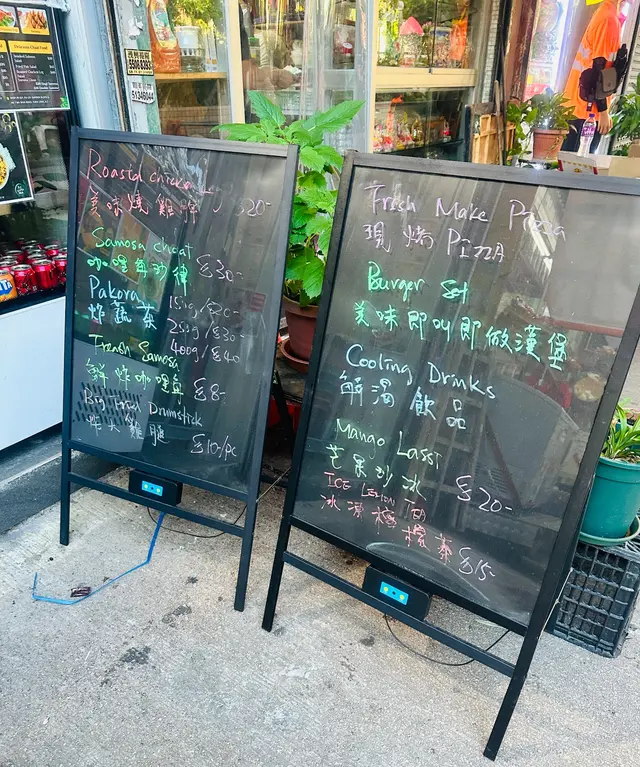 Roasted chicken
美味燒雞 $20-
Samosa chaat
咖哩角沙律 $30-
Pakora 150g/$20-
炸蔬菜 250g/$30-
400g/$40
Fresh Samosa
鮮炸咖哩角 $8-
Big Fried Drumstick
炸大雞腿 $10-/pc
Fresh Make Pizza
現烤 PIZZA
Burger Set
美味即叫即做漢堡
Cooling Drinks
解渴飲品
Mango Lassi
芒果沙冰 $20-
ICE LEMON
冰凍檸檬茶 $15-